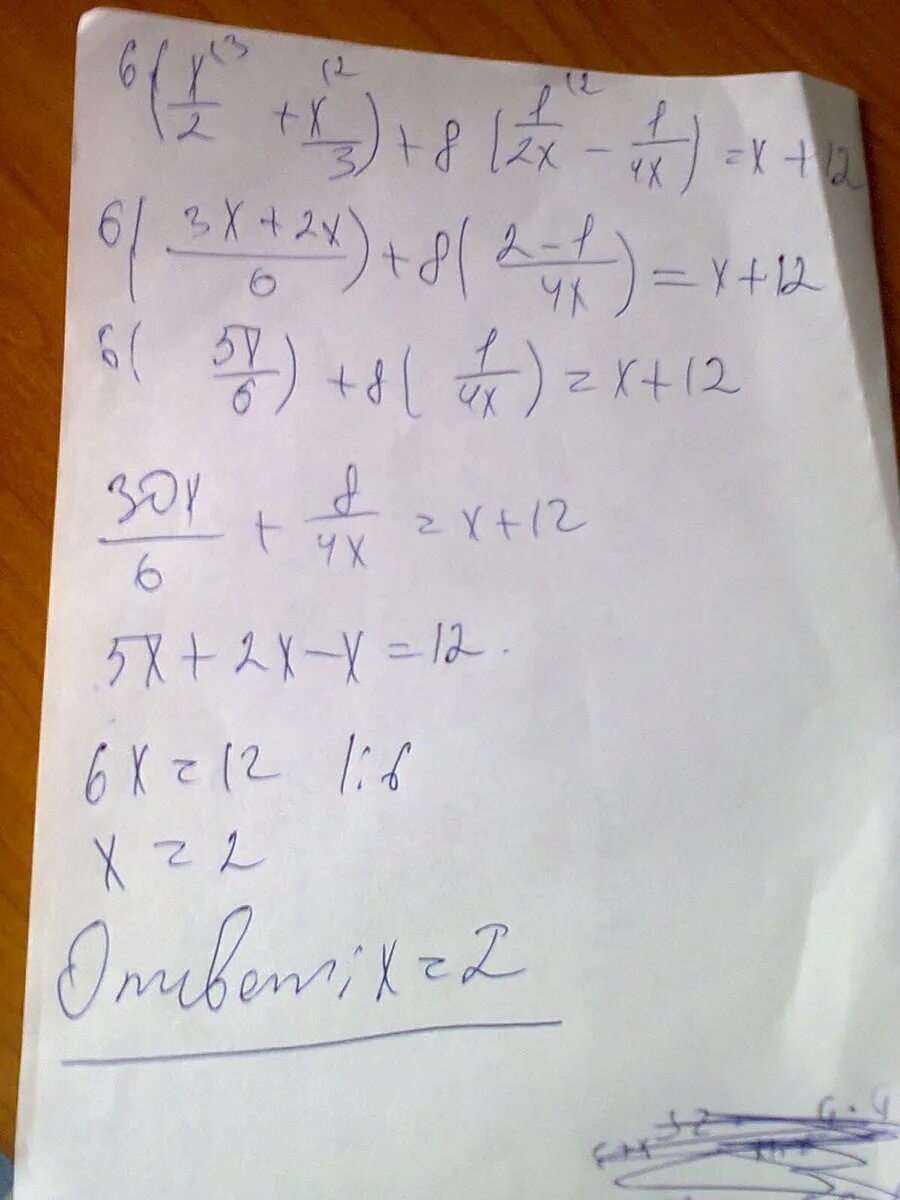 6(x/2^(3 + x/3^(2) + 8(1/2x^(2 - 1/4x) = x + 12
6(3x + 2x/6) + 8(2 - 1/4x) = x + 12
6(5x/6) + 8(1/4x) = x + 12
30x/6 + 8/4x = x + 12
5x + 2x - x = 12.
6x = 12 /:6
x = 2
Ответ: x = 2